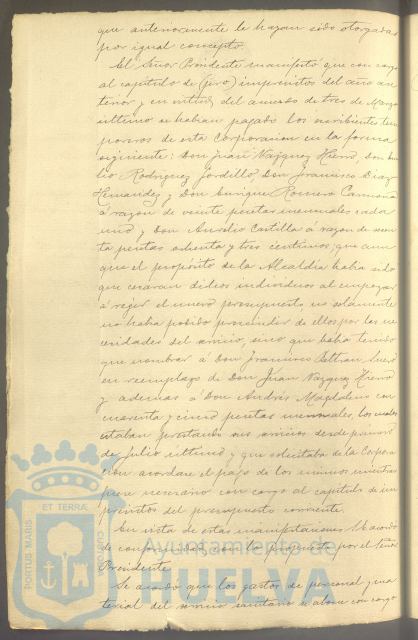 que anteriormente le hayan sido otorgadas
por igual concepto.
El Señor Presidente manifestó que con cargo
al capítulo de (giro) imprevistos del año an
terior y en virtud del acuerdo de tres de Marzo
ultimo se habian pagado los escribientes tem
poreros de esta Corporacion en la forma
siguiente: Don Juan Vazquez Hierro, Don
lio Rodriguez Jordillo, Don Francisco Diaz
Hernandez y Don Enrique Romero Carmona
á razon de veinte pesetas mensuales cada
uno y Don Aurelio Castilla á razon de
ta pesetas ochenta y tres centimos; que aun
que el propósito de la Alcaldia habia sido
que cesaran dichos individuos al empezar
á regir el nuevo presupuesto, no solamente
no habia podido prescindir de ellos por las ne
cesidades del servicio, sino que habia tenido
que nombrar á Don Francisco Beltran
en reemplazo de Don Juan Vazquez Hierro
y ademas á Don Andrés Magdaleno con
cuarenta y cinco pesetas mensuales, los cuales
estaban prestando sus servicios desde primero
de Julio ultimo y que solicitaba de la Corpora
cion acordase el pago de los mismos mientras
fuese necesario con cargo al capitulo de im
previstos del presupuesto corriente.
En vista de estas manifestaciones se acordó
de conformidad con lo propuesto por el Señor
Presidente.
Se acordó que los gastos de personal y ma
terial del servicio sanitario se abone con cargo
PORTUS MARIS
ET TERRÆ
CUSTODIA
Ayuntamiento de
HUELVA